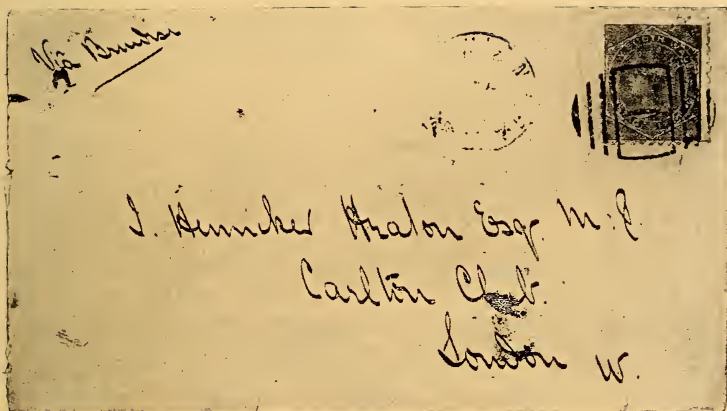 Via Brindisi
J. Henniker Heaton Esq. M.P.
Carlton Club.
London W.